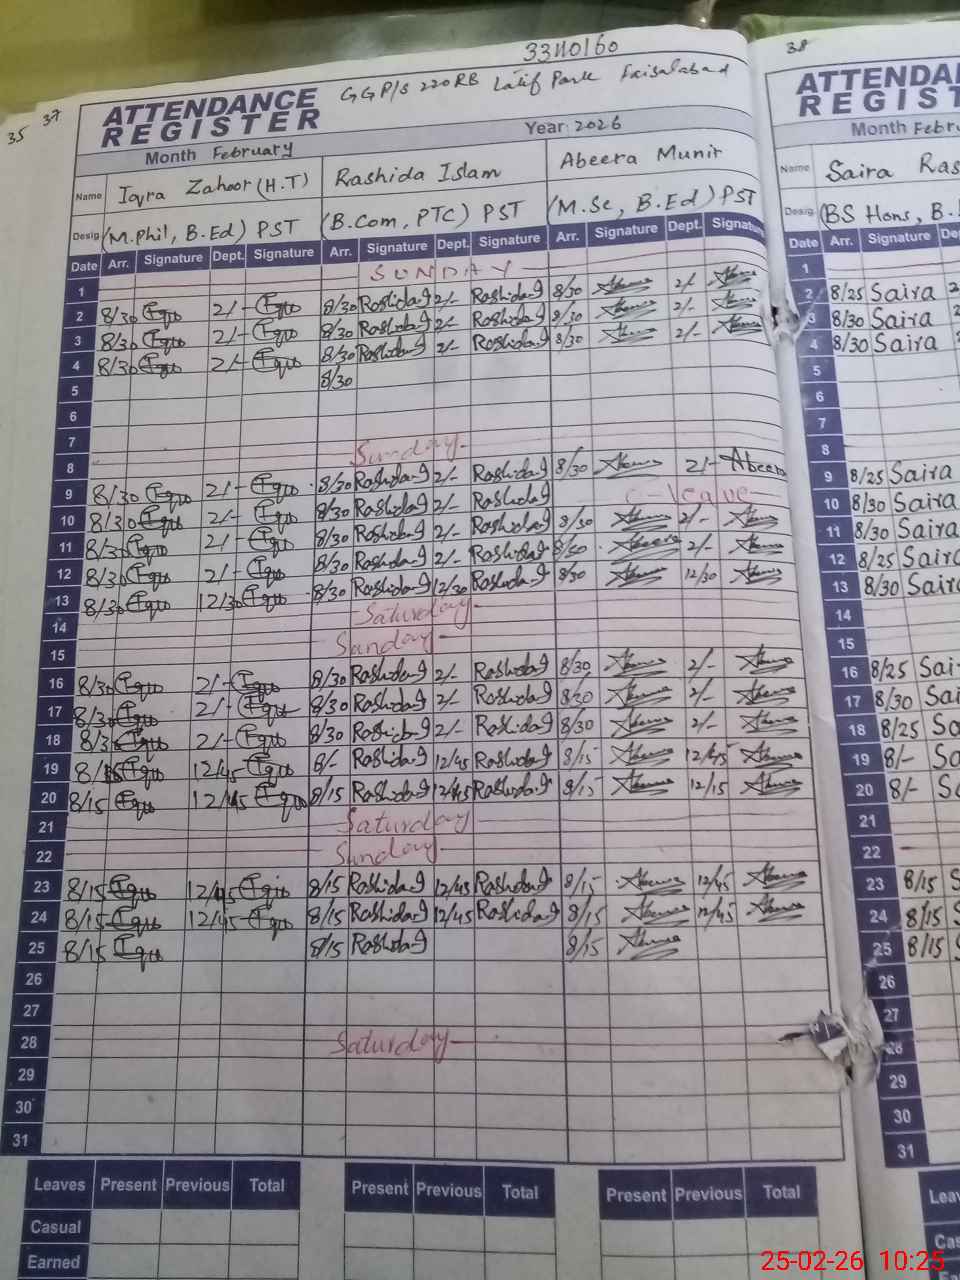 33110160
35 37
ATTENDANCE
REGISTER
GGP/S 220RB Latif Park Faisalabad
Month February
Year: 2026
Name Iqra Zahoor (H.T) Rashida Islam Abeera Munir
Desig. (M.Phil, B.Ed) PST (B.Com, PTC) PST (M.Sc, B.Ed) PST
Date Arr. Signature Dept. Signature Arr. Signature Dept. Signature Arr. Signature Dept. Signature
1 SUNDAY
2 8/30 Iqra 2/- Iqra 8/30 Rashida I 2/- Rashida I 8/30 2/-
3 8/30 Iqra 2/- Iqra 8/30 Rashida I 2/- Rashida I 8/30 2/-
4 8/30 Iqra 2/- Iqra 8/30 Rashida I 2/- Rashida I 8/30 2/-
5 8/30
6
7
8 Sunday
9 8/30 Iqra 2/- Iqra 8/30 Rashida I 2/- Rashida I 8/30 2/- Abeera
10 8/30 Iqra 2/- Iqra 8/30 Rashida I 2/- Rashida I C-leave
11 8/30 Iqra 2/- Iqra 8/30 Rashida I 2/- Rashida I 8/30 2/-
12 8/30 Iqra 2/- Iqra 8/30 Rashida I 2/- Rashida I 8/30 Abeera 2/-
13 8/30 Iqra 12/30 Iqra 8/30 Rashida I 12/30 Rashida I 8/30 12/30
14 Saturday
15 Sunday
16 8/30 Iqra 2/- Iqra 8/30 Rashida I 2/- Rashida I 8/30 2/-
17 8/30 Iqra 2/- Iqra 8/30 Rashida I 2/- Rashida I 8/30 2/-
18 8/3 Iqra 2/- Iqra 8/30 Rashida I 2/- Rashida I 8/30 2/-
19 8/15 Iqra 12/45 Iqra 8/- Rashida I 12/45 Rashida I 8/15 12/45
20 8/15 Iqra 12/45 Iqra 8/15 Rashida I 12/45 Rashida I 8/15 12/15
21 Saturday
22 Sunday
23 8/15 Iqra 12/45 Iqra 8/15 Rashida I 12/45 Rashida I 8/15 12/45
24 8/15 Iqra 12/45 Iqra 8/15 Rashida I 12/45 Rashida I 8/15 12/45
25 8/15 Iqra 8/15 Rashida I 8/15
26
27
28 Saturday
29
30
31
Leaves Present Previous Total Present Previous Total Present Previous Total
Casual
Earned
38
ATTENDA
REGIST
Month Febru
Name Saira Ras
Desig. (BS Hons, B.
Date Arr. Signature De
1
2 8/25 Saira 2
3 8/30 Saira 2
4 8/30 Saira
5
6
7
8
9 8/25 Saira
10 8/30 Saira
11 8/30 Saira
12 8/25 Saira
13 8/30 Saira
14
15
16 8/25 Sai
17 8/30 Sa
18 8/25 Sa
19 8/- Sa
20 8/- Sa
21
22
23 8/15 S
24 8/15 S
25 8/15 S
26
27
28
29
30
31
Leav
Cas
25-02-26 10:25